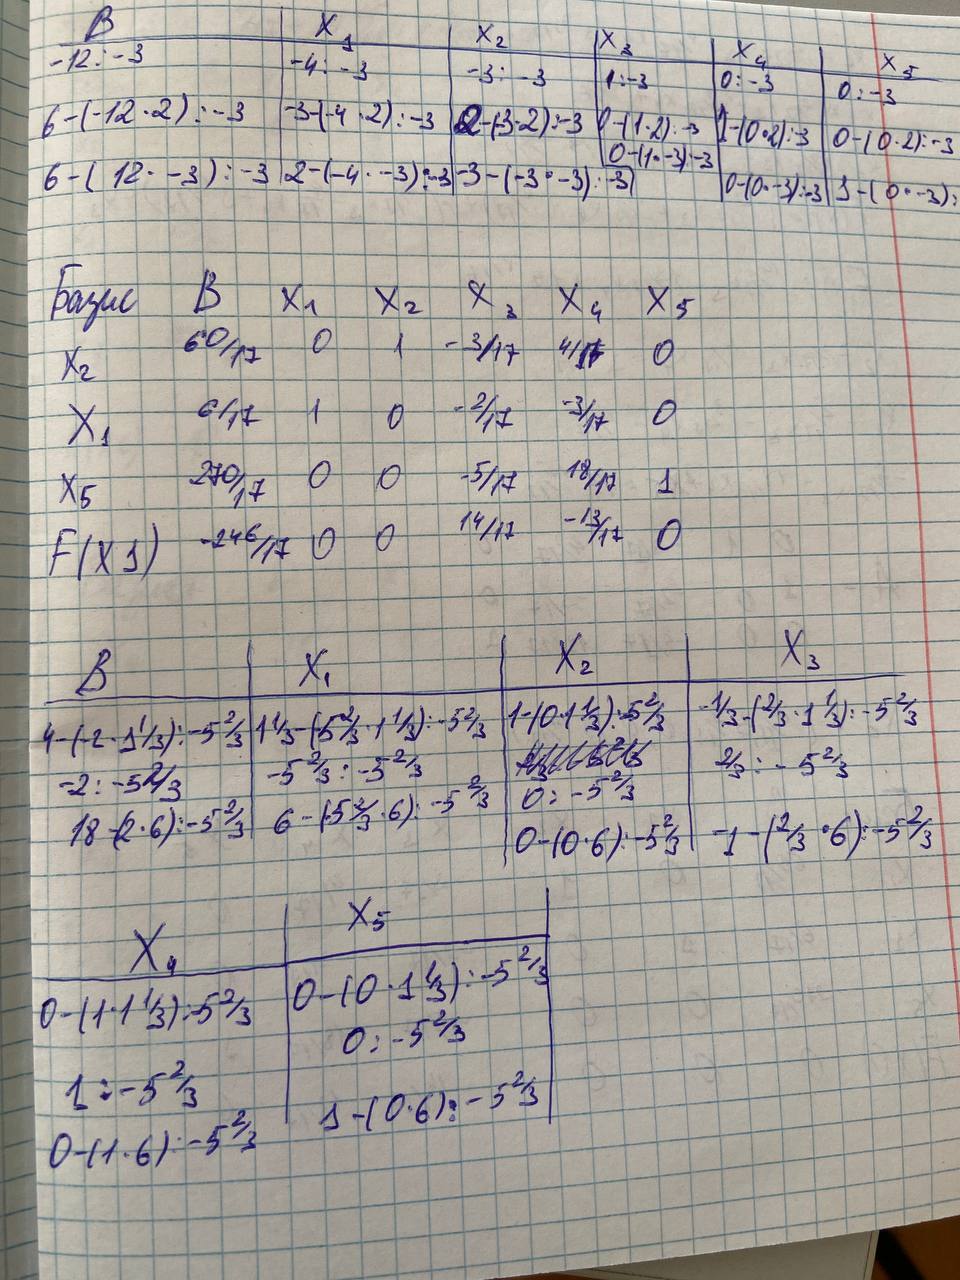 B X₁ X₂ X₃ X₄ X₅
-12:-3 -4:-3 -3:-3 1:-3 0:-3 0:-3
6-(-12·2):-3 -3-(-4·2):-3 2-(-3·2):-3 0-(1·2):-3 1-(0·2):-3 0-(0·2):-3
6-(12·-3):-3 2-(-4·-3):-3 -3-(-3·-3):-3) 0-(1·-3):-3 0-(0·-3):-3 1-(0·-3):
Базис B X₁ X₂ X₃ X₄ X₅
X₂ 60/17 0 1 -3/17 4/17 0
X₁ 6/17 1 0 -2/17 -3/17 0
X₅ 270/17 0 0 -5/17 18/17 1
F(X1) -246/17 0 0 14/17 -13/17 0
B X₁ X₂ X₃
4-(-2·1 1/3):-5 2/3 1 1/3-(-5 2/3·1 1/3):-5 2/3 1-(0·1 1/3):-5 2/3 -1/3-(2/3·1 1/3):-5 2/3
-2:-5 2/3 -5 2/3:-5 2/3 0:-5 2/3 2/3:-5 2/3
18-(2·6):-5 2/3 6-(-5 2/3·6):-5 2/3 0-(0·6):-5 2/3 -1-(2/3·6):-5 2/3
X₄ X₅
0-(1·1 1/3):-5 2/3 0-(0·1 1/3):-5 2/3
1:-5 2/3 0:-5 2/3
0-(1·6):-5 2/3 1-(0·6):-5 2/3